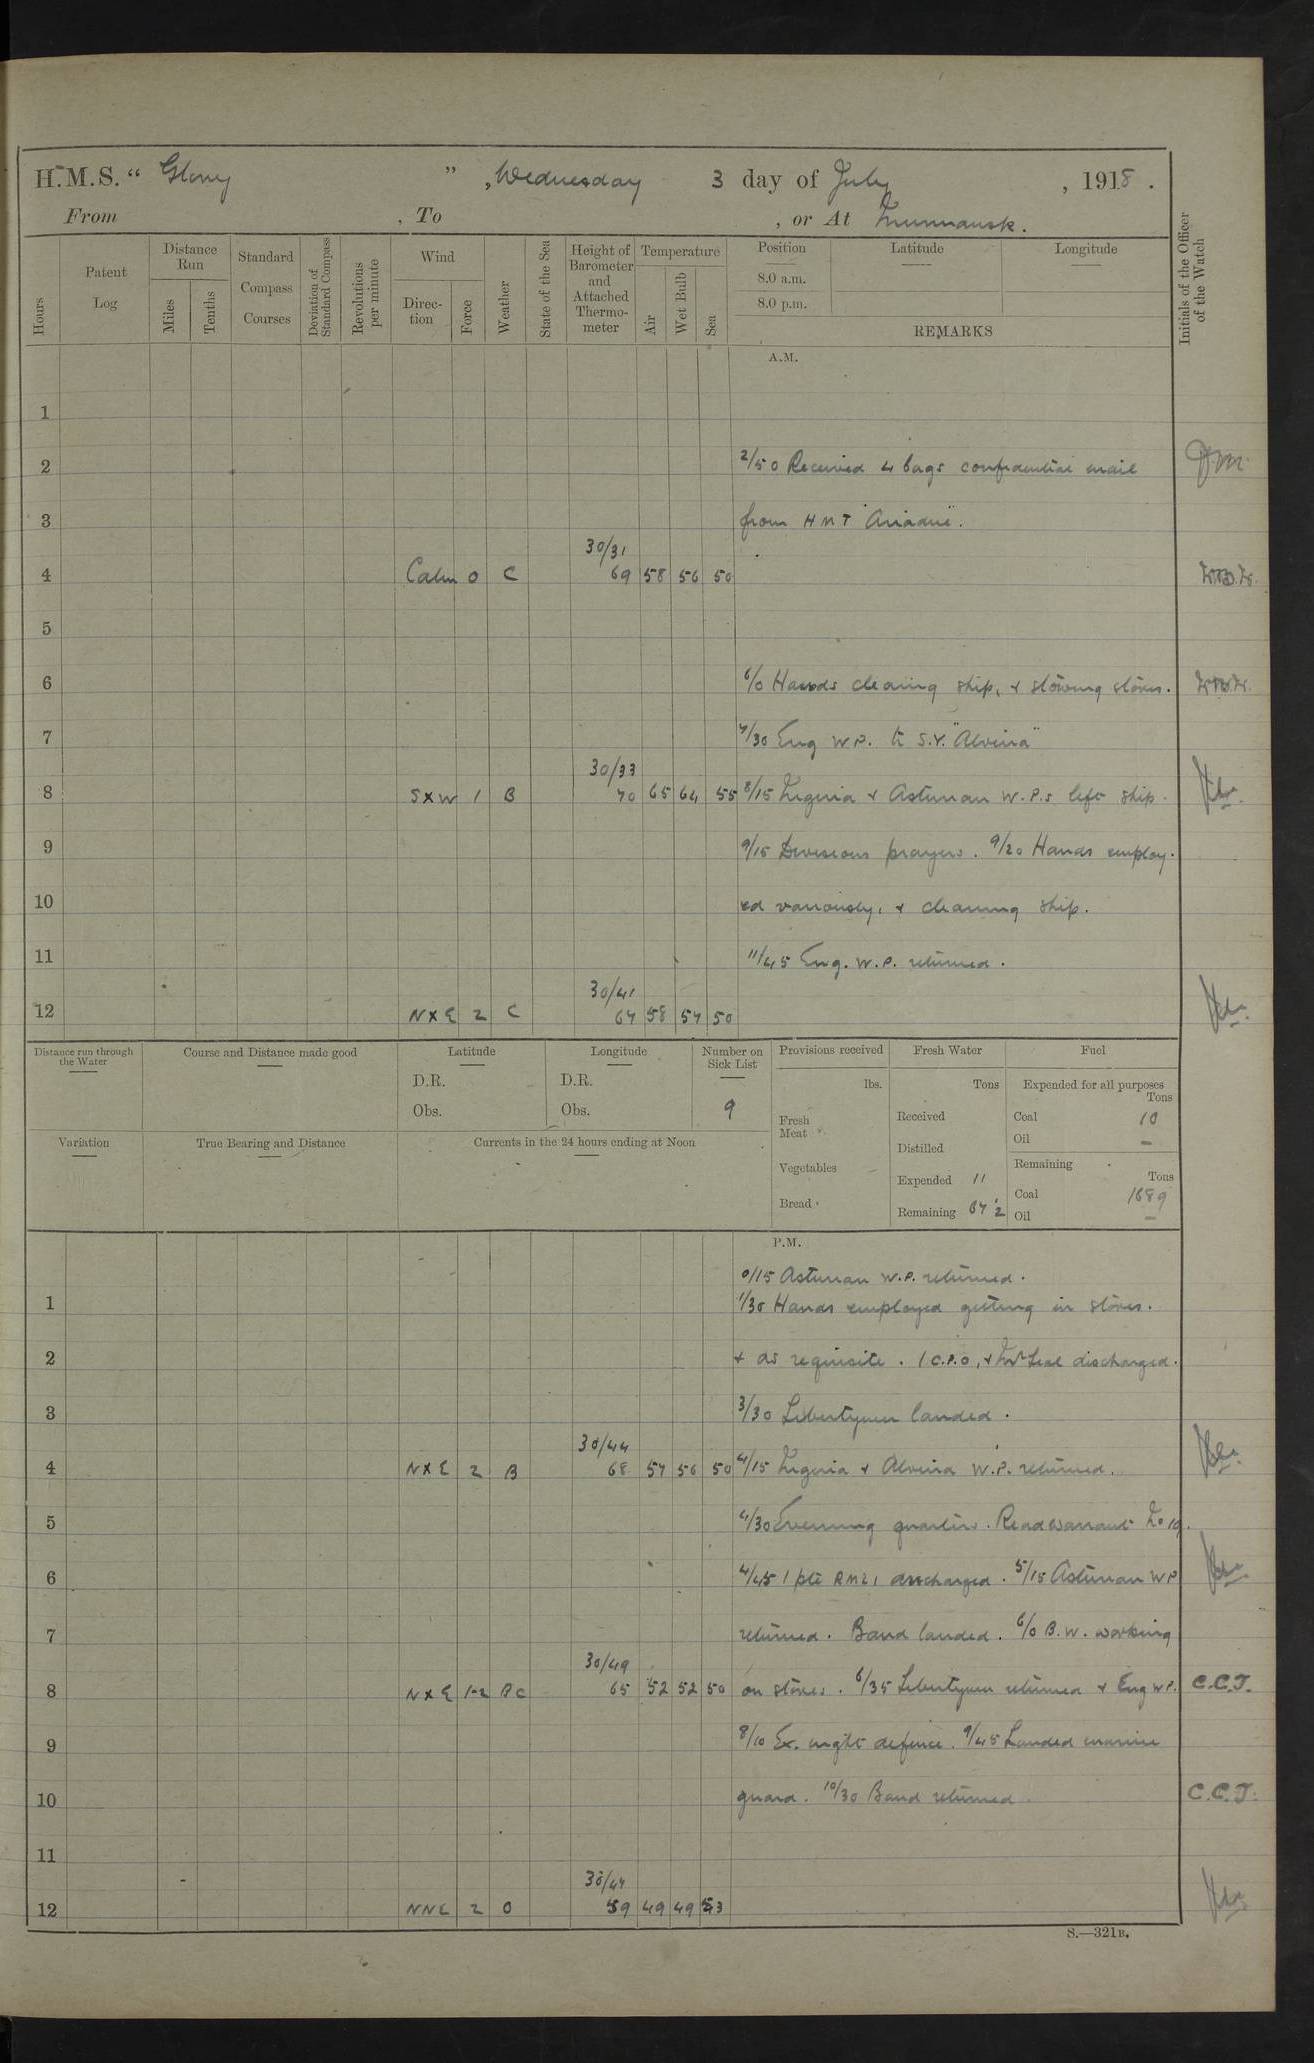 H.M.S. “ Glory ” , Wednesday 3 day of July , 1918 .
From , To , or At Murmansk.
Hours
Patent Log
Distance Run
Miles
Tenths
Standard Compass Courses
Deviation of Standard Compass
Revolutions per minute
Wind
Direc-tion
Force
Weather
State of the Sea
Height of Barometer and Attached Thermo-meter
Temperature
Air
Wet Bulb
Sea
Position
8.0 a.m.
8.0 p.m.
Latitude
Longitude
REMARKS
Initials of the Officer of the Watch
A.M.
1
2 2/50 Received 4 bags confidential mail
3 from HMT "Ariadne".
30/31
4 Calm 0 C 69 58 56 50
5
6 6/0 Hands cleaning ship, & stowing stores.
7 7/30 Eng W.P. to S.Y. "Alvina"
30/33
8 S x W 1 B 70 65 64 55 8/15 & Asturian W.P.s left ship.
9 9/15 Divisions prayers. 9/20 Hands employ-
10 ed variously, & cleaning ship.
11 11/45 Eng. W.P. returned.
30/41
12 N x E 2 C 67 58 57 50
Distance run through the Water
Course and Distance made good
Latitude
D.R.
Obs.
Longitude
D.R.
Obs.
Number on Sick List
9
Provisions received
lbs.
Fresh Meat
Vegetables
Bread
Fresh Water
Tons
Received
Distilled
Expended 11
Remaining
Fuel
Expended for all purposes
Tons
Coal 10
Oil –
Remaining
Tons
Coal 1689
Oil –
Variation
True Bearing and Distance
Currents in the 24 hours ending at Noon
P.M.
0/15 Asturian W.P. returned.
1 1/30 Hands employed getting in stores.
2 & as requisite. 1 C.P.O, & discharged.
3 3/30 Libertymen landed.
30/44
4 N x E 2 B 68 57 56 50 4/15 & Alvina W.P. returned.
5 4/30 Evening quarters. Read warrant No 19.
6 4/45 1 pte RMLI discharged. 5/15 Asturian WP
7 returned. Band landed. 6/0 B.W. working
30/49
8 N x E 1-2 BC 65 52 52 50 on stores. 6/35 Libertymen returned & Eng W.P. C.C.T.
9 8/10 Ex. night defence. 9/45 Landed marine
10 guard. 10/30 Band returned C.C.T.
11
30/47
12 NNE 2 O 59 49 49 53
S.—321B.